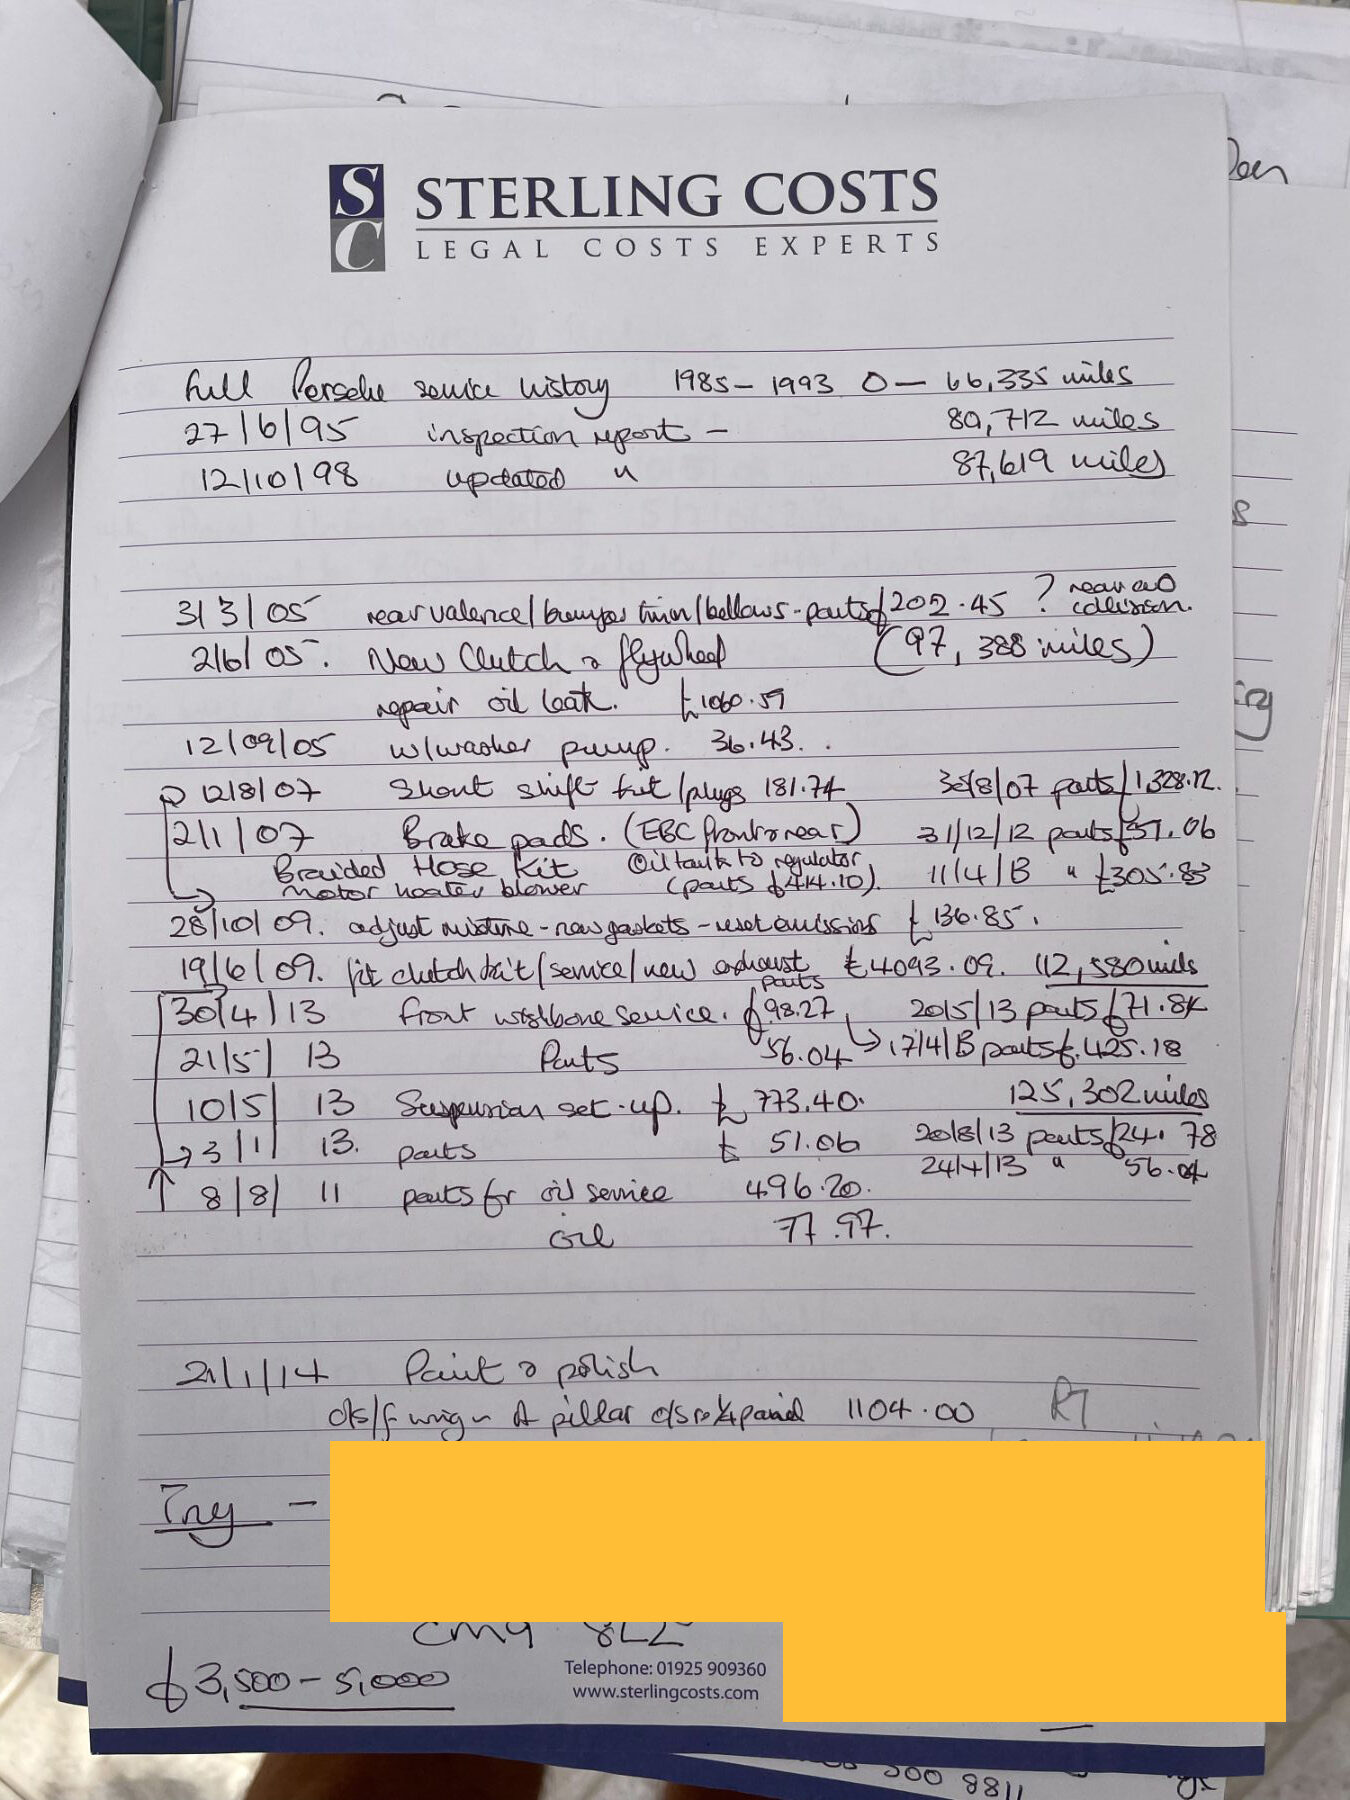 S STERLING COSTS
C LEGAL COSTS EXPERTS
Full Porsche service history 1985 - 1993 0 - 66,335 miles
27/6/95 inspection report - 80,712 miles
12/10/98 updated " 87,619 miles
31/3/05 rear valence/bumper trim/bellows - parts £202.45 ? rear end collision.
2/6/05. New Clutch & flywheel (97,388 miles)
repair oil leak. £1060.59
12/09/05 w/washer pump. 36.43.
12/8/07 Short shift kit/plugs 181.74 30/8/07 parts £1,328.12.
2/1/07 Brake pads. (EBC front & rear) 31/12/12 parts £51.06
Braided Hose Kit Oil tank to regulator 11/4/13 " £305.83
Motor heater blower (parts £414.10).
28/10/09. adjust mixture - new gaskets - reset emissions £136.85.
19/6/09. fit clutch kit/service/new exhaust £4093.09. 112,580 miles
30/4/13 front wishbone service. parts £98.27 20/5/13 parts £71.84
21/5/13 Parts 56.04 17/4/13 parts £425.18
10/5/13 Suspension set-up. £773.40. 125,302 miles
3/1/13. parts £51.06 20/8/13 parts £24.78
24/4/13 " 56.04
8/8/11 parts for oil service 496.20.
oil 77.97.
21/1/14 Paint & polish
o/s/f wing - A pillar o/s r 1/4 panel 1104.00
Try -
CM9 8LL
£3,500 - 5,000
Telephone: 01925 909360
www.sterlingcosts.com